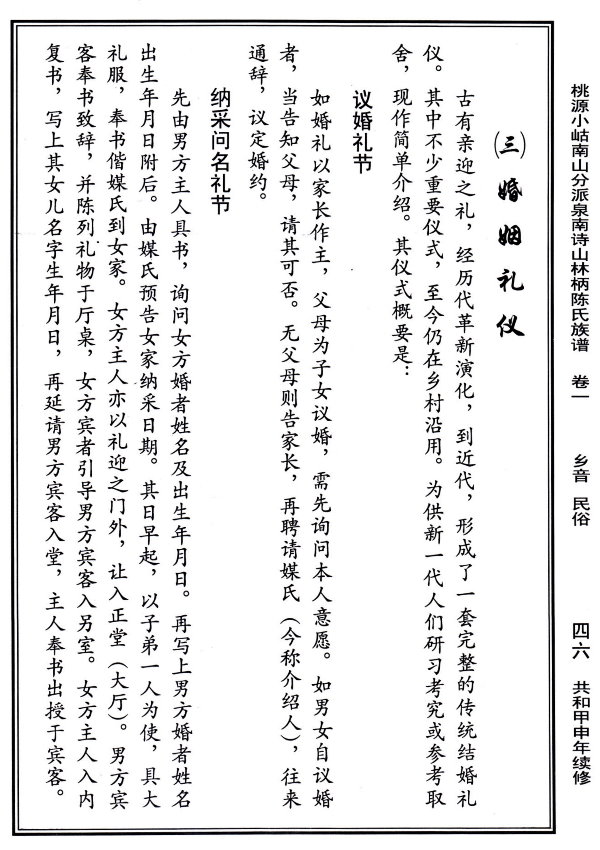 桃源小岵南山分派泉南诗山林柄陈氏族谱 卷一 乡音 民俗 四六 共和甲申年续修
(三) 婚姻礼仪
古有亲迎之礼，经历代革新演化，到近代，形成了一套完整的传统结婚礼
仪。其中不少重要仪式，至今仍在乡村沿用。为供新一代人们研习考究或参考取
舍，现作简单介绍。其仪式概要是：
议婚礼节
如婚礼以家长作主，父母为子女议婚，需先询问本人意愿。如男女自议婚
者，当告知父母，请其可否。无父母则告家长，再聘请媒氏（今称介绍人），往来
通辞，议定婚约。
纳采问名礼节
先由男方主人具书，询问女方婚者姓名及出生年月日。再写上男方婚者姓名
出生年月日附后。由媒氏预告女家纳采日期。其日早起，以子弟一人为使，具大
礼服，奉书偕媒氏到女家。女方主人亦以礼迎之门外，让入正堂（大厅）。男方宾
客奉书致辞，并陈列礼物于厅桌，女方宾者引导男方宾客入另室。女方主人入内
复书，写上其女儿名字生年月日，再延请男方宾客入堂，主人奉书出授于宾客。